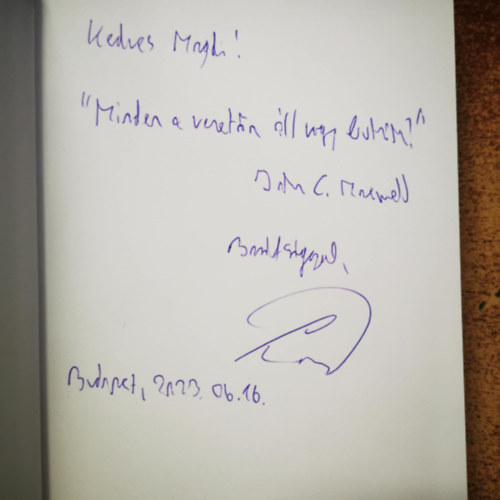 Kedves Magdi!
"Minden a vezetőn áll vagy bukik!"
John C. Maxwell
Barátsággal,
Budapest, 2023. 06. 16.